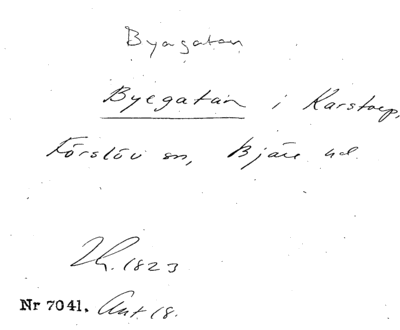 Byagatan
Byegatan i Karstorp,
Förslöv sn, Bjäre hd.
Lh. 1823
Nr 7041. Ant 18.